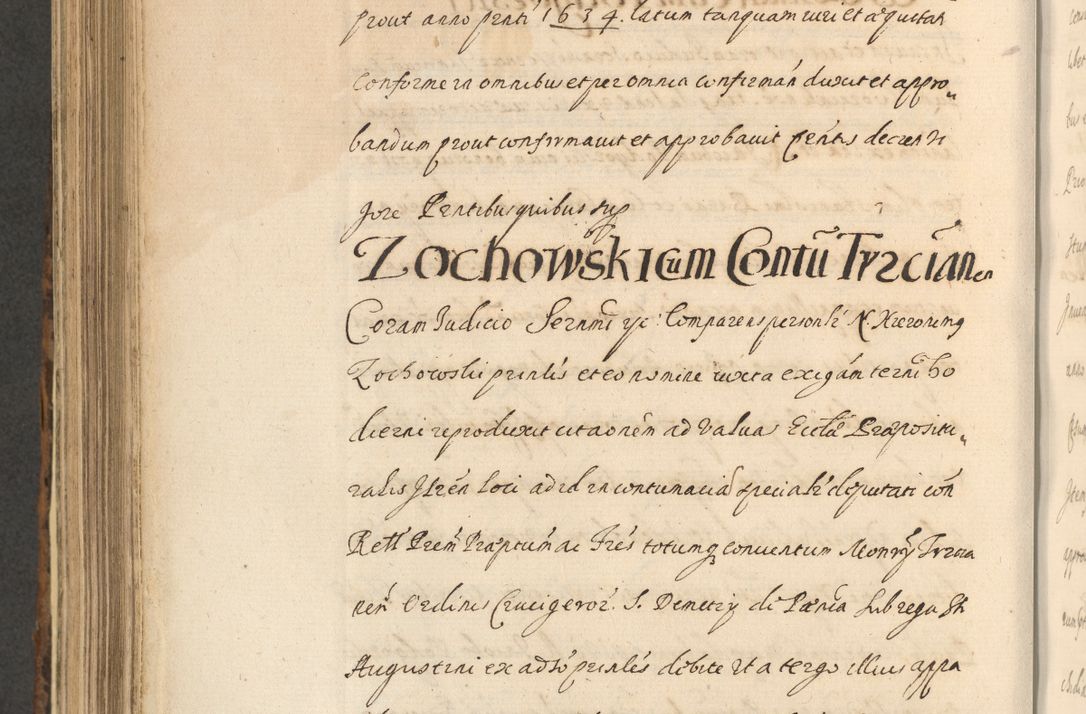 prout anno prnti 1634. latum tanquam iuri et æquitati
Conforme in omnibus et per omnia confirmán duxit et appro„
bandum prout confirmavit et approbavit pñtis decreti
Pñtibus quibus sup
Zochowskicum Contũ Trzcianen
Coram Judicio Serñmi yc: Comparens personlr N. Hieronimg
Zochowski prinlis et eo nomine iuxta exigám terni ho
dierni reproduxit citaonem ad Valuas Ecclæ Præpositu„
ralis loci ad id in contumaciã specialr deputati cón
Rell Prem Præptum ac Frés totumq conventum Monrÿ Trzcia
nen Ordinis Crucigeror. S. Demetrÿ de Pænia sub regu St
Augustini ex adso prinlés debite et a tergo illius appa